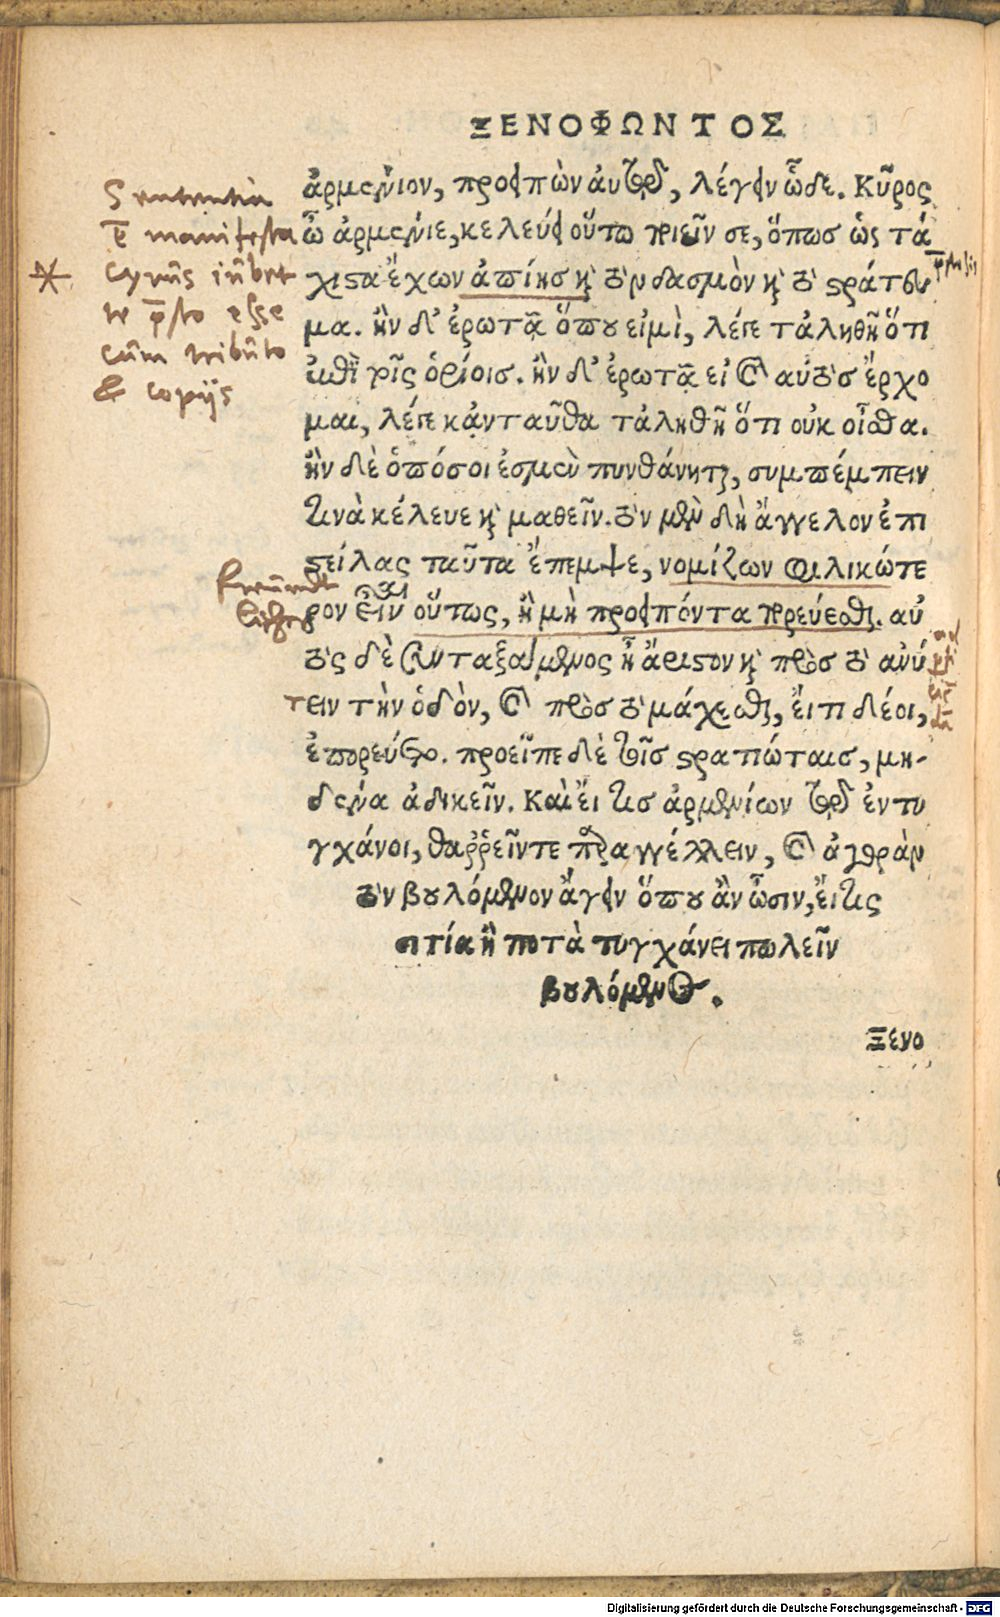 ΞΕΝΟΦΩΝΤΟΣ
ἀρμένιον, προσειπὼν αὐτῷ, λέγειν ὧδε. Κῦρος
ὦ ἀρμένιε, κελεύει οὕτω ποιεῖν σε, ὅπως ὡς τά
χιστα ἔχων ἀπίης καὶ τὸν δασμὸν καὶ τὸ στράτευ
μα. ἢν δ' ἐρωτᾷ ὅπου εἰμὶ, λέγε τἀληθῆ ὅτι
ἐπὶ τοῖς ὁρίοις. ἢν δ' ἐρωτᾷ εἰ καὶ αὐτὸς ἔρχο
μαι, λέγε κἀνταῦθα τἀληθῆ ὅτι οὐκ οἶσθα.
ἢν δὲ ὁπόσοι ἐσμὲν πυνθάνηται, συμπέμπειν
τινὰ κέλευε καὶ μαθεῖν. τὸν μὲν δὴ ἄγγελον ἐπι
στείλας ταῦτα ἔπεμψε, νομίζων φιλικώτε
ρον εἶναι οὕτως, ἢ μὴ προειπόντα πορεύεσθαι. αὐ
τὸς δὲ συνταξάμενος ᾗ ἄριστον καὶ πρὸς τὸ ἀνύ
τειν τὴν ὁδὸν, καὶ πρὸς τὸ μάχεσθαι, εἴ τι δέοι,
ἐπορεύετο. προεῖπε δὲ τοῖς στρατιώταις, μη-
δένα ἀδικεῖν. Καὶ εἴ τις ἀρμενίων τῳ ἐντυ
γχάνοι, θαῤῥεῖν τε παραγγέλλειν, καὶ ἀγορὰν
τὸν βουλόμενον ἄγειν ὅπου ἂν ὦσιν, εἴ τις
σιτία ἢ ποτὰ τυγχάνει πωλεῖν
βουλόμενος.
Ξενο
Sententia
ē manifesta
Cyrus iubet
te p̄sto esse
cum tributo
& copijs
freundt
licher
Digitalisierung gefördert durch die Deutsche Forschungsgemeinschaft - DFG